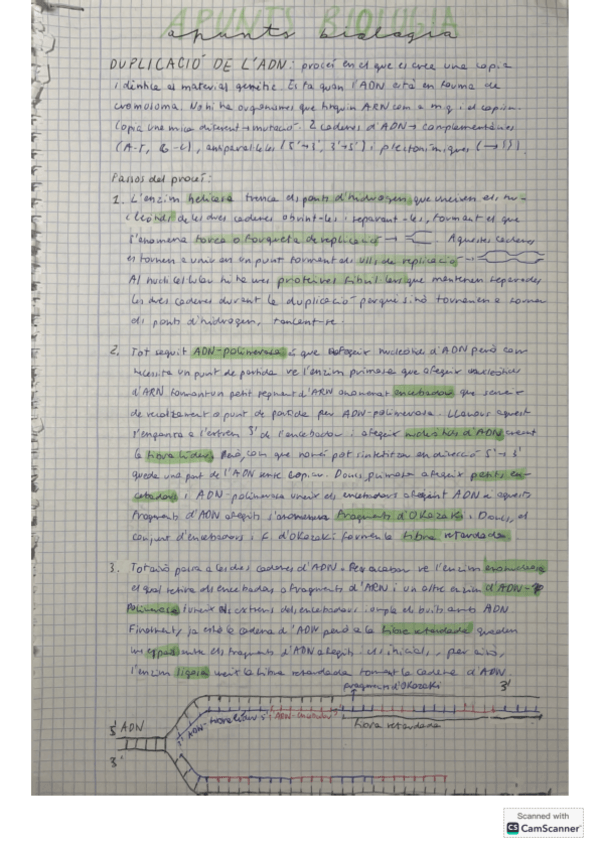 APUNTS BIOLOGIA
apunts biologia
DUPLICACIÓ DE L'ADN: procés en el que es crea una copia
idèntica al material genètic. Està quan l'ADN està en forma de
cromosoma. No hi ha organismes que tinguin ARN com a m.g. i el copiin.
Copia una mica diferent → mutació. 2 cadenes d'ADN → complementàries
(A-T, G-C), antiparal·leles (5'→3', 3'→5') i plectonímiques
Passos del procés:
1. L'enzim helicasa trenca els ponts d'hidrogen que uneixen els nu-
cleòtids de les dues cadenes obrint-les i separant-les, formant el que
s'anomena forca o forqueta de replicació → Aquestes cadenes
es tornen a unir en un punt formant els ulls de replicació →
Al nucli cel·lular hi ha unes proteïnes que mantenen separades
les dues cadenes durant la duplicació perquè sinó tornarien a formar
els ponts d'hidrogen, tancant-se.
2. Tot seguit ADN-polimerasa afegeix nucleòtids d'ADN però com
necessita un punt de partida ve l'enzim primasa que afegeix nucleòtids
d'ARN formant un petit segment d'ARN anomenat encebador que serveix
de recolzament o punt de partida per ADN-polimerasa. Llavors aquest
s'enganxa a l'extrem 3' de l'encebador i afegeix nucleòtids d'ADN creant
la fibra líder. Però, com que només pot sintetitzar en direcció 5'→3'
queda una part de l'ADN sense copiar. Doncs, primasa afegeix petits en-
cebadors i ADN-polimerasa uneix els encebadors afegint ADN a aquests
fragments d'ADN afegits s'anomenen Fragments d'Okazaki. Doncs, el
conjunt d'encebadors i f. d'Okazaki formen la fibra retardada.
3. Tot això passa a les dues cadenes d'ADN. Per acabar ve l'enzim
el qual retira els encebadors o fragments d'ARN i un altre enzim d'ADN-
Polimerasa uneix els extrems dels encebadors i omple els buits amb ADN
Finalment, ja està la cadena d'ADN però a la fibra retardada queden
uns espais entre els fragments d'ADN afegits i els inicials, per això,
l'enzim ligasa uneix la fibra retardada formant la cadena d'ADN.
fragment d'Okazaki 3'
5' ADN
ADN-fibra líder 5' ARN-encebador
fibra retardada
3'
Scanned with
CS CamScanner